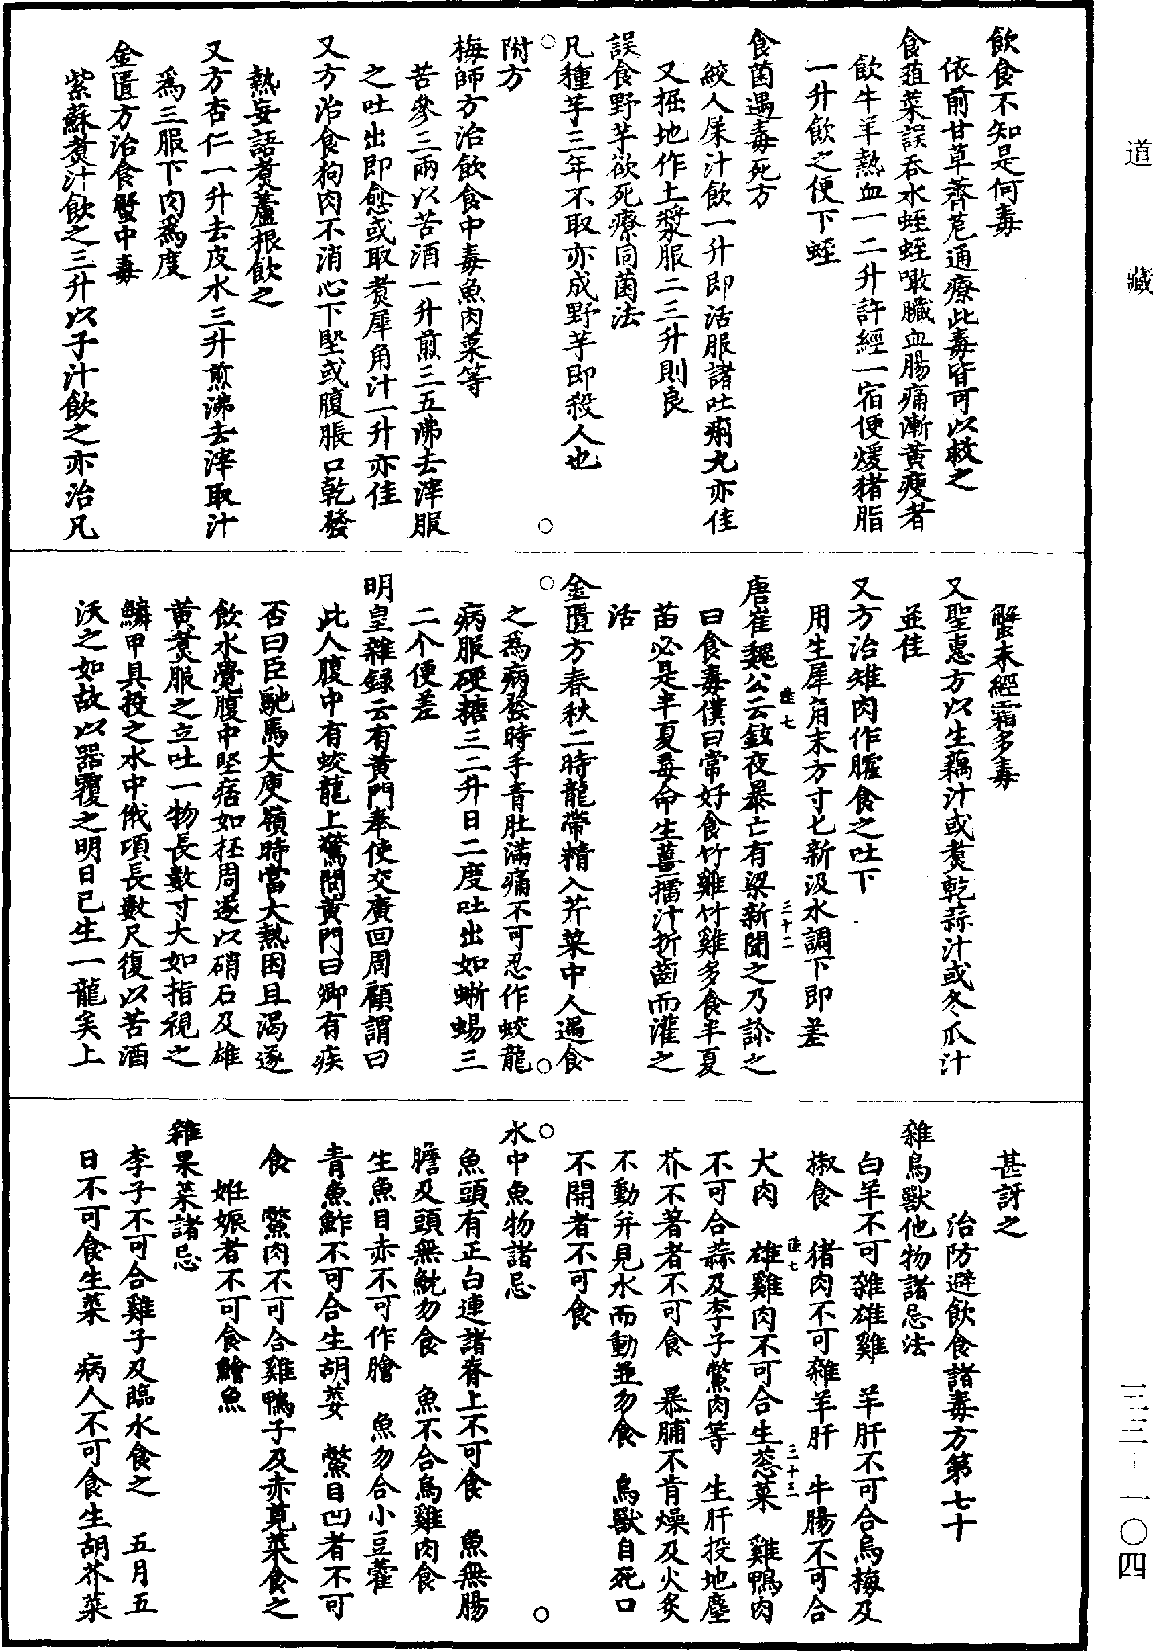 道藏
飲食不知是何毒
依前甘草薺苨通療此毒皆可以救之
食蕹菜誤吞水蛭蛭噉臟血腸痛漸黃瘦者
飲牛羊熱血一二升許經一宿便煖猪脂
一升飲之便下蛭
食菌遇毒死方
絞人屎汁飲一升即活服諸吐痢丸亦佳
又掘地作土漿服二三升則良
誤食野芋欲死療同菌法
凡種芋三年不取亦成野芋即殺人也
附方
梅師方治飲食中毒魚肉菜等
苦參三兩以苦酒一升煎三五沸去滓服
之吐出即愈或取煑犀角汁一升亦佳
又方治食狗肉不消心下堅或腹脹口乾發
熱妄語煑蘆根飲之
又方杏仁一升去皮水三升煎沸去滓取汁
爲三服下肉爲度
金匱方治食蟹中毒
紫蘇煑汁飲之三升以子汁飲之亦治凡
蟹未經霜多毒
又聖惠方以生藕汁或煑乾蒜汁或冬瓜汁
並佳
又方治雉肉作臛食之吐下
用生犀角末方寸匕新汲水調下即差
唐崔魏公云鉉夜暴亡有梁新聞之乃診之
曰食毒僕曰常好食竹雞竹雞多食半夏
苗必是半夏毒命生薑擂汁折齒而灌之
活
金匱方春秋二時龍帶精入芥菜中人遇食
之爲病發時手青肚滿痛不可忍作蛟龍
病服硬糖三二升日二度吐出如蜥蜴三
二个便差
明皇雜錄云有黃門奉使交廣回周顧謂曰
此人腹中有蛟龍上驚問黃門曰卿有疾
否曰臣馳馬大庾嶺時當大熱困且渴遂
飲水覺腹中堅痞如抔周遂以硝石及雄
黃煑服之立吐一物長數寸大如指視之
鱗甲具投之水中俄項長數尺復以苦酒
沃之如故以器覆之明日已生一龍矣上
甚訝之
治防避飲食諸毒方第七十
雜鳥獸他物諸忌法
白羊不可雜雄雞　羊肝不可合烏梅及
椒食　猪肉不可雜羊肝　牛腸不可合
犬肉　雄雞肉不可合生葱菜　雞鴨肉
不可合蒜及李子鱉肉等　生肝投地塵
芥不著者不可食　暴脯不肯燥及火炙
不動并見水而動並勿食　鳥獸自死口
不開者不可食
水中魚物諸忌
魚頭有正白連諸脊上不可食　魚無腸
膽及頭無魫勿食　魚不合烏雞肉食
生魚目赤不可作膾　魚勿合小豆藿
青魚鮓不可合生胡荽　鱉目凹者不可
食　鱉肉不可合雞鴨子及赤莧菜食之
姙娠者不可食鱠魚
雜果菜諸忌
李子不可合雞子及臨水食之　五月五
日不可食生菜　病人不可食生胡芥菜
三三－一〇四